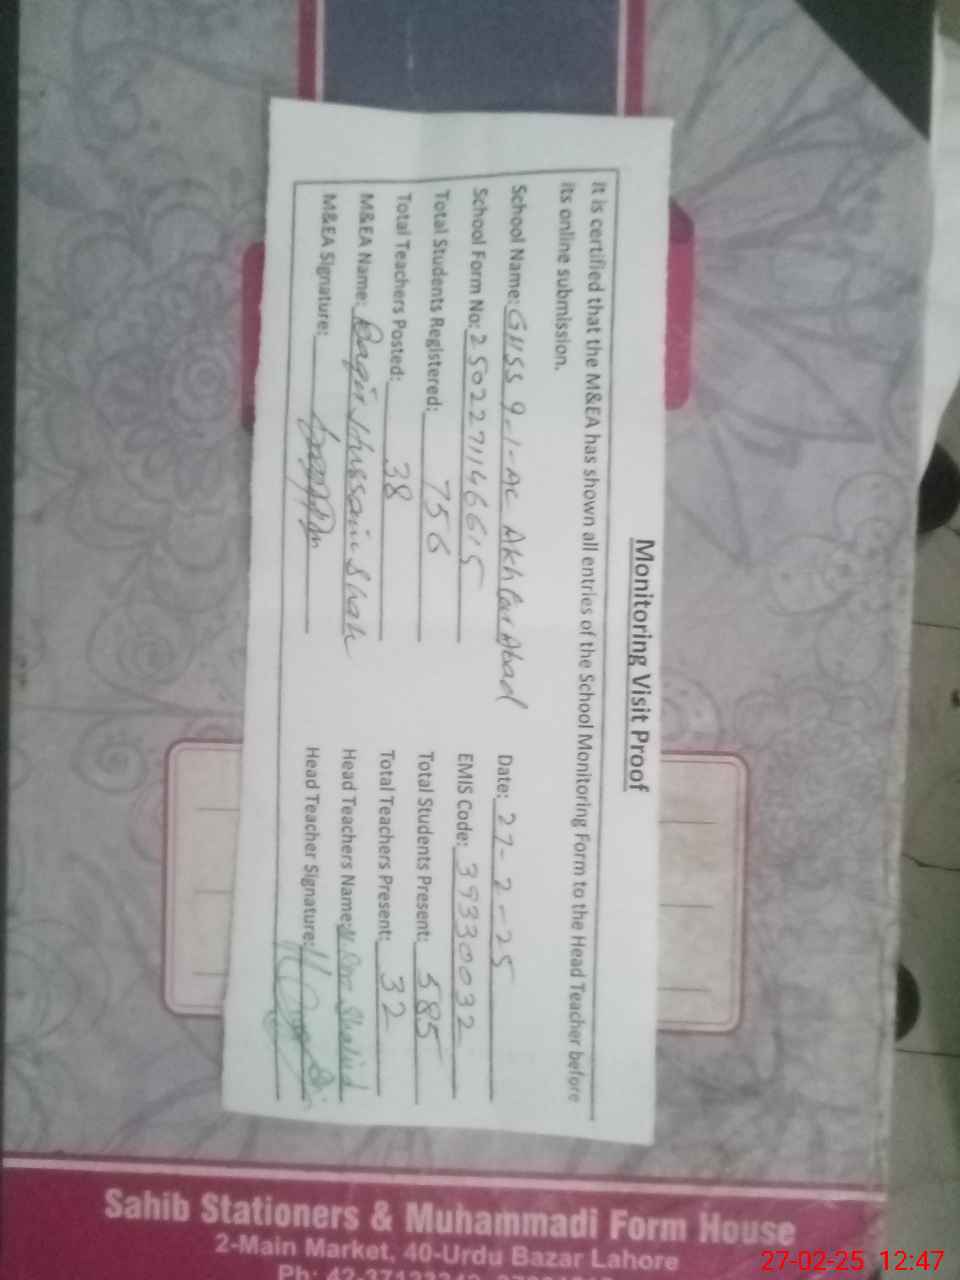 Monitoring Visit Proof
It is certified that the M&EA has shown all entries of the School Monitoring Form to the Head Teacher before
its online submission.
School Name: GHSS 9-1-AC Akhtar Abad Date: 27-2-25
School Form No: 2502271146615 EMIS Code: 39330032
Total Students Registered: 756 Total Students Present: 585
Total Teachers Posted: 38 Total Teachers Present: 32
M&EA Name: Baqir Hussain Shah Head Teachers Name: Shahid
M&EA Signature: Head Teacher Signature:
Sahib Stationers & Muhammadi Form House
2-Main Market, 40-Urdu Bazar Lahore
27-02-25 12:47